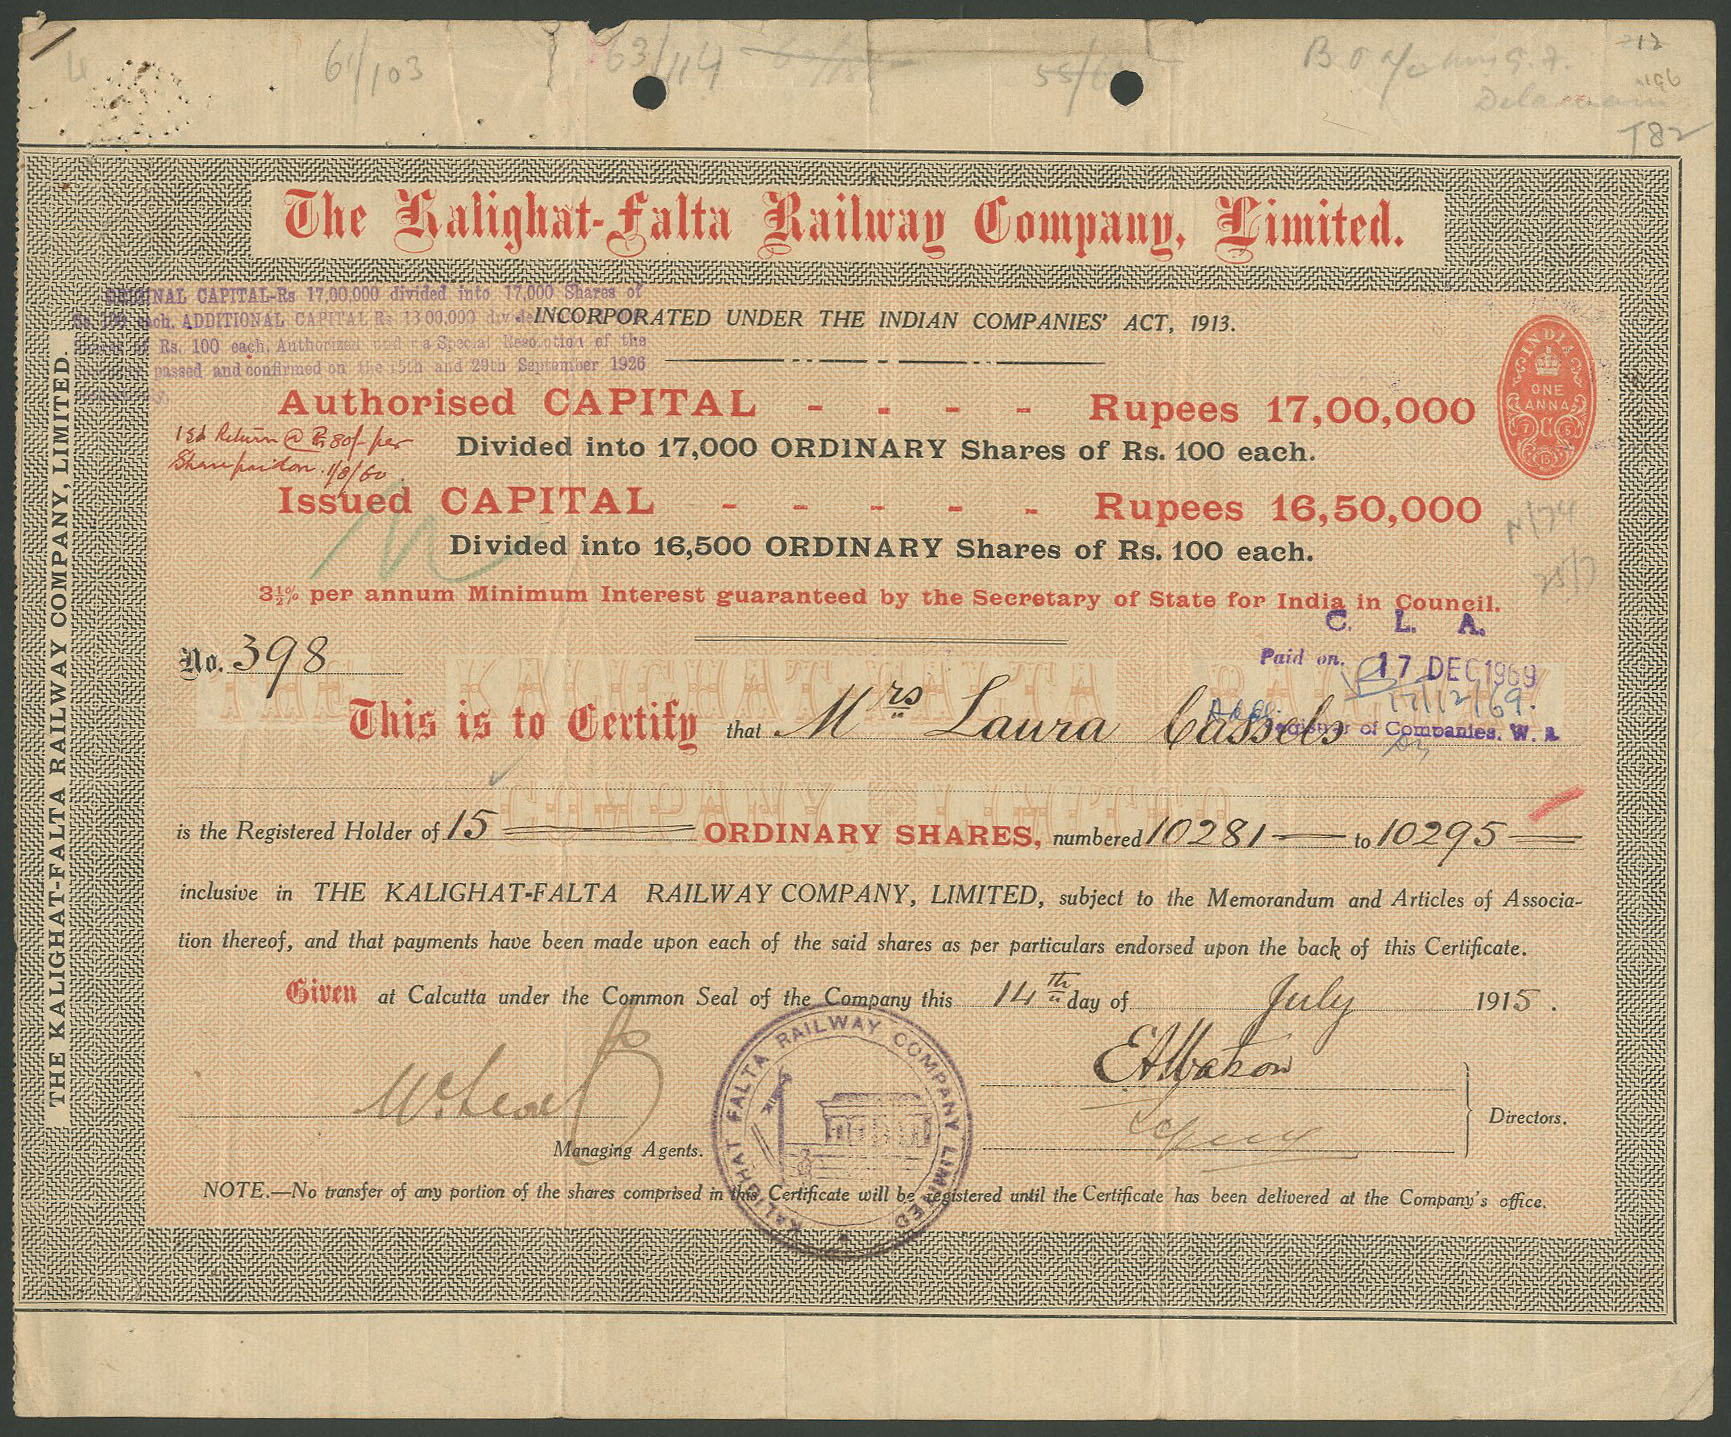 61/103
63/114
212
196
T82
The Kalighat-Falta Railway Company, Limited.
ORIGINAL CAPITAL-Rs 17,00,000 divided into 17,000 Shares of
Rs. 100 each. ADDITIONAL CAPITAL Rs 13 00,000
Shares of Rs. 100 each. Authorized a Special Resolution of the
passed and confirmed on the 15th and 29th September 1926
INCORPORATED UNDER THE INDIAN COMPANIES' ACT, 1913.
INDIA
ONE
ANNA
Authorised CAPITAL - - - - Rupees 17,00,000
Divided into 17,000 ORDINARY Shares of Rs. 100 each.
1st Return @ Rs 80/- per
Share paid on 1/8/60
Issued CAPITAL - - - - - Rupees 16,50,000
Divided into 16,500 ORDINARY Shares of Rs. 100 each.
3½% per annum Minimum Interest guaranteed by the Secretary of State for India in Council.
C. L. A.
Paid on. 17 DEC 1969
17/12/69.
Registrar of Companies. W. B.
No. 398
This is to Certify that Mrs Laura Cassels
is the Registered Holder of 15 ORDINARY SHARES, numbered 10281 to 10295
inclusive in THE KALIGHAT-FALTA RAILWAY COMPANY, LIMITED, subject to the Memorandum and Articles of Associa-
tion thereof, and that payments have been made upon each of the said shares as per particulars endorsed upon the back of this Certificate.
Given at Calcutta under the Common Seal of the Company this 14th day of July 1915.
Managing Agents.
Directors.
KALIGHAT FALTA RAILWAY COMPANY LIMITED
NOTE.—No transfer of any portion of the shares comprised in this Certificate will be registered until the Certificate has been delivered at the Company's office.
THE KALIGHAT-FALTA RAILWAY COMPANY, LIMITED.
THE KALIGHAT-FALTA RAILWAY
COMPANY LIMITED